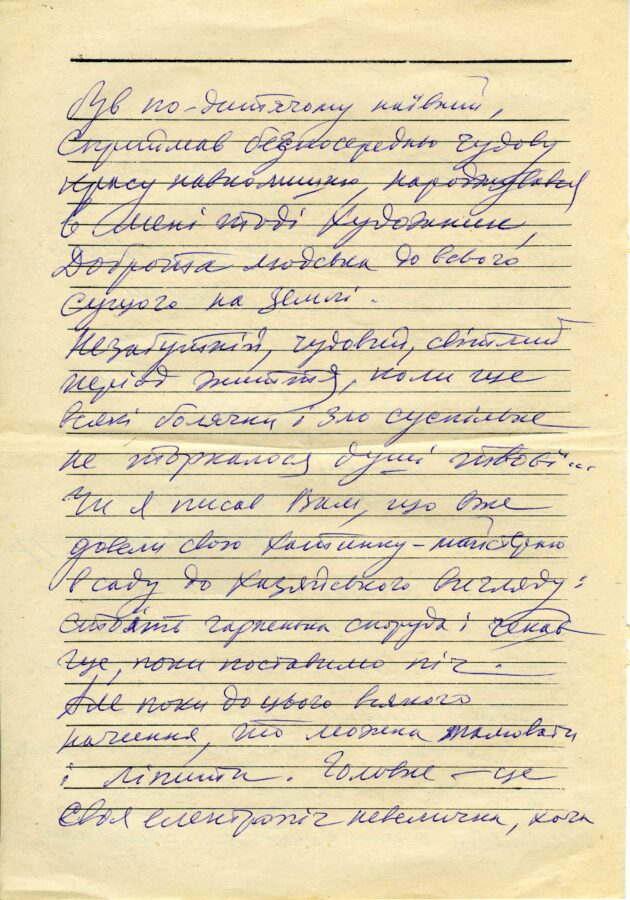 Був по-дитячому наївний,
сприймав безпосередньо чудову
красу навколишню, народжувався
в мені тоді художник,
Доброта людська до всього
сущого на землі.
Незабутній, чудовий, світлий
період життя, коли ще
всякі болячки і зло суспільне
не торкалося душі твоєї...
Чи я писав Вам, що вже
довели свою хатинку-майстерню
в саду до хазяйського вигляду:
стоїть гарненька споруда і чекає
ще, поки поставимо піч.
Але поки до цього всякого
начиння, то можна малювати
і ліпити. Головне – це
своя електропіч невеличка, хоча